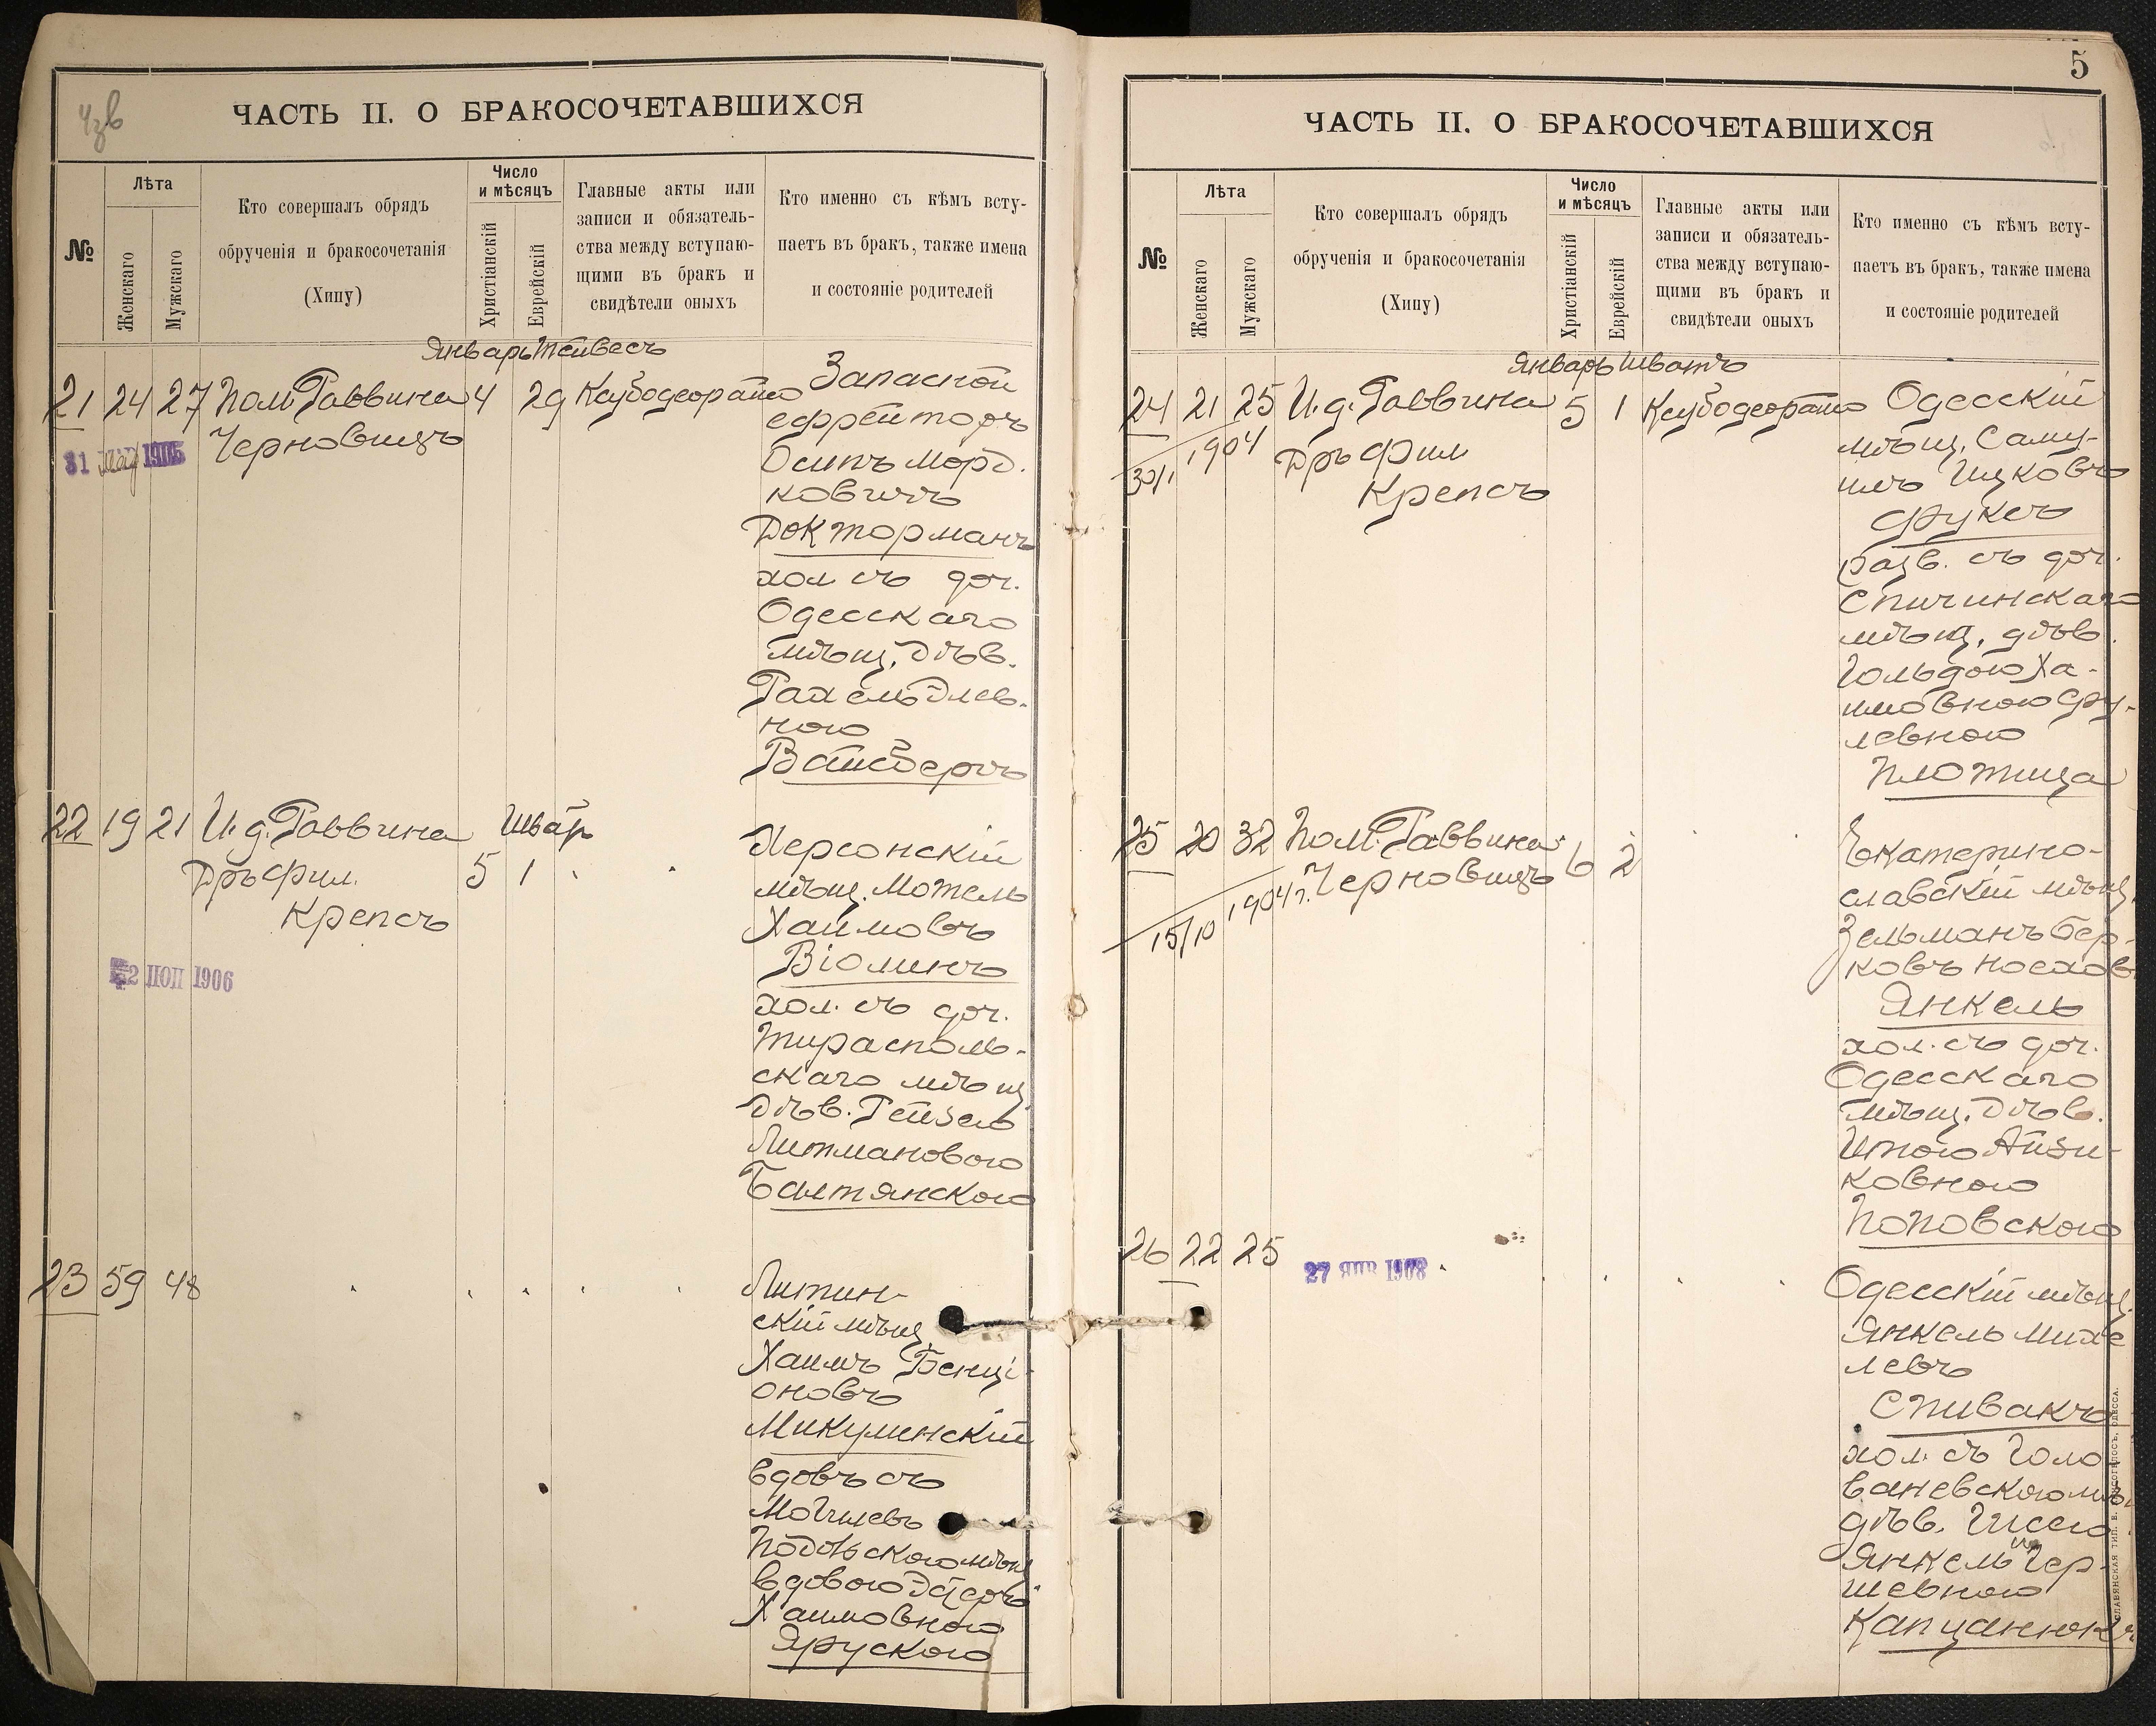 ЧАСТЬ II. О БРАКОСОЧЕТАВШИХСЯ
№
Лѣта
Женскаго
Мужскаго
Кто совершалъ обрядъ
обрученія и бракосочетанія
(Хипу)
Число
и мѣсяцъ
Христіанскій
Еврейскій
Главные акты или
записи и обязатель-
ства между вступаю-
щими въ бракъ и
свидѣтели оныхъ
Кто именно съ кѣмъ всту-
паетъ въ бракъ, также имена
и состояніе родителей
Январь Тейвесъ
21 24 27 Пом. Раввина 4 29
Черновицъ
31 1905
Запасной
ефрейторъ
Осипъ Морд-
ковичъ
Докторманъ
хол. съ доч.
Одесскаго
мѣщ. дѣв.
Рахель Элев-
ною
Вайсбергъ
22 19 21 И. д. Раввина
Дръ Фил.
Крепсъ
Шват
5 1
2 1906
Херсонскій
мѣщ. Мотель
Хаимовъ
Віолинъ
хол. съ доч.
Тирасполь-
скаго мѣщ.
дѣв. Рейзею
Литмановою
Балтянскою
23 59 48
Литин-
скій мѣщ.
Хаимъ Бенці-
оновъ
Микулинскій
вдовъ съ
Могилевъ
Подольскою мѣщ.
вдовою
Хаимовною
Ярускою
5
ЧАСТЬ II. О БРАКОСОЧЕТАВШИХСЯ
№
Лѣта
Женскаго
Мужскаго
Кто совершалъ обрядъ
обрученія и бракосочетанія
(Хипу)
Число
и мѣсяцъ
Христіанскій
Еврейскій
Главные акты или
записи и обязатель-
ства между вступаю-
щими въ бракъ и
свидѣтели оныхъ
Кто именно съ кѣмъ всту-
паетъ въ бракъ, также имена
и состояніе родителей
Январь Шватъ
24 21 25 И. д. Раввина 5 1
Дръ Фил
Крепсъ
30/1 1904
Одесскій
мѣщ. Саму-
илъ Ицковъ
Фуксъ
разв. съ доч.
Спичинскаго
мѣщ. дѣв.
Гольдою Ха-
имовною Сру-
левною
Плотица
25 20 32 Пом. Раввина 6 2
Черновицъ
15/10 1904 г.
Екатерино-
славскій мѣщ.
Зельманъ Бер-
ковъ Носхов
Янкель
хол. съ доч.
Одесскаго
мѣщ. дѣв.
Итою Айзи-
ковною
Поповскою
26 22 25
27 ЯНВ 1908
Одесскій мѣщ.
Янкель Михе
левъ
Спивакъ
хол. съ Голо
ваневскою мѣ
дѣв.
Янкель Гер-
шевною
СЛАВЯНСКАЯ ТИП. Н. ХРИСОГЕЛОСЪ, ОДЕССА.